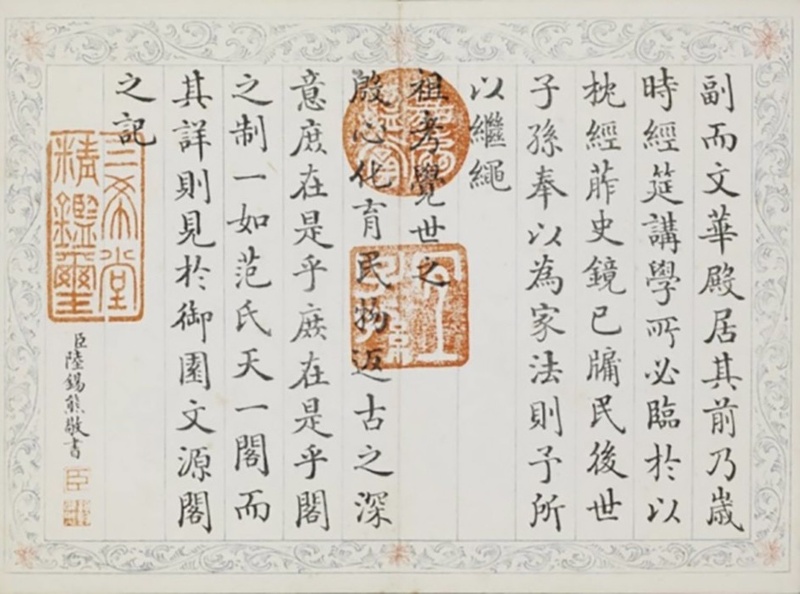 副而文華殿居其前乃歲
時經筵講學所必臨於以
枕經葄史鏡己牖民後世
子孫奉以為家法則予所
以繼繩
祖考覺世之
殷心化育民物返古之深
意庶在是乎庶在是乎閣
之制一如范氏天一閣而
其詳則見於御園文源閣
之記
宜
子孫
三希堂
精鑑璽
臣陸錫熊敬書
臣